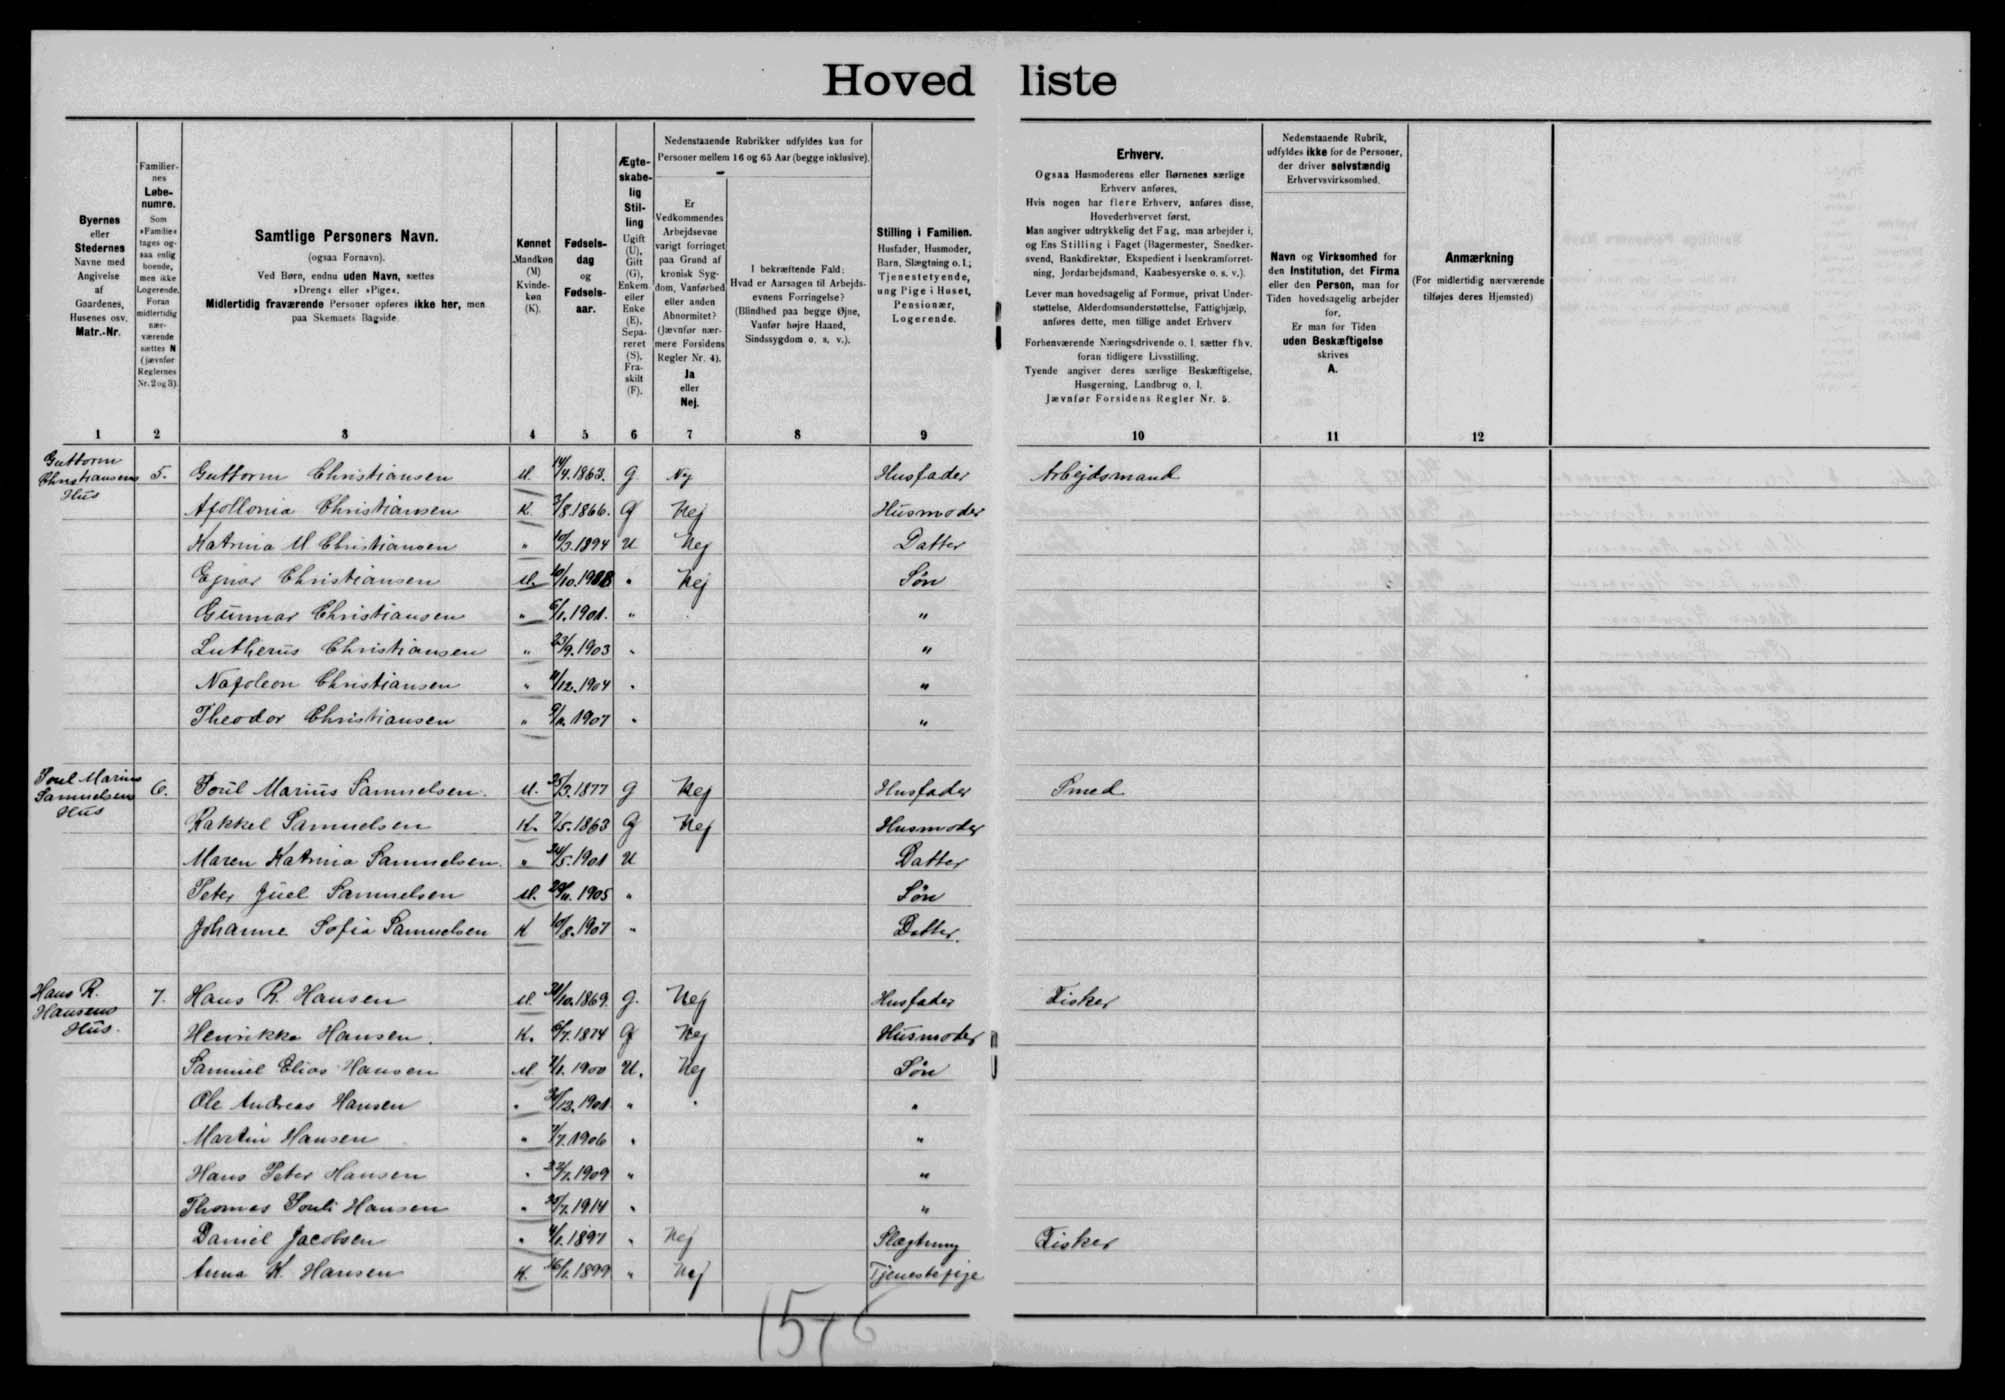 Hovedliste
Byernes
eller
Stedernes
Navne med
Angivelse
af
Gaardenes,
Husenes osv.
Matr.-Nr.
Familier-
nes
Løbe-
numre.
Som
»Familie«
tages og-
saa enlig
boende,
men ikke
Logerende.
Foran
midlertidig
nær-
værende
sættes N
(jævnfør
Reglernes
Nr. 2 og 3).
Samtlige Personers Navn.
(ogsaa Fornavn).
Ved Børn, endnu uden Navn, sættes
»Dreng« eller »Pige«.
Midlertidig fraværende Personer opføres ikke her, men
paa Skemaets Bagside.
Kønnet
Mandkøn
(M)
Kvinde-
køn
(K).
Fødsels-
dag
og
Fødsels-
aar.
Ægte-
skabe-
lig
Stil-
ling
Ugift
(U),
Gift
(G),
Enkem.
eller
Enke
(E),
Sepa-
reret
(S),
Fra-
skilt
(F).
Nedenstaaende Rubrikker udfyldes kun for
Personer mellem 16 og 65 Aar (begge inklusive).
Er
Vedkommendes
Arbejdsevne
varigt forringet
paa Grund af
kronisk Syg-
dom, Vanførhed
eller anden
Abnormitet?
(Jævnfør nær-
mere Forsidens
Regler Nr. 4).
Ja
eller
Nej.
I bekræftende Fald:
Hvad er Aarsagen til Arbejds-
evnens Forringelse?
(Blindhed paa begge Øjne,
Vanfør højre Haand,
Sindssygdom o. s. v.).
Stilling i Familien.
Husfader, Husmoder,
Barn, Slægtning o. l.;
Tjenestetyende,
ung Pige i Huset,
Pensionær,
Logerende.
Erhverv.
Ogsaa Husmoderens eller Børnenes særlige
Erhverv anføres.
Hvis nogen har flere Erhverv, anføres disse,
Hovederhvervet først.
Man angiver udtrykkelig det Fag, man arbejder i,
og Ens Stilling i Faget (Bagermester, Snedker-
svend, Bankdirektør, Ekspedient i Isenkramforret-
ning, Jordarbejdsmand, Kaabesyerske o. s. v.).
Lever man hovedsagelig af Formue, privat Under-
støttelse, Alderdomsunderstøttelse, Fattighjælp,
anføres dette, men tillige andet Erhverv
Forhenværende Næringsdrivende o. l. sætter fhv.
foran tidligere Livsstilling.
Tyende angiver deres særlige Beskæftigelse,
Husgerning, Landbrug o. l.
Jævnfør Forsidens Regler Nr. 5.
Nedenstaaende Rubrik,
udfyldes ikke for de Personer,
der driver selvstændig
Erhvervsvirksomhed.
Navn og Virksomhed for
den Institution, det Firma
eller den Person, man for
Tiden hovedsagelig arbejder
for.
Er man for Tiden
uden Beskæftigelse
skrives
A.
Anmærkning
(For midlertidig nærværende
tilføjes deres Hjemsted)
1 2 3 4 5 6 7 8 9 10 11 12
Guttorm
Christiansens
Hus
5. Guttorm Christiansen M. 14/4.1863. G Nej Husfader Arbejdsmand
Apollonia Christiansen K. 3/8.1866. G Nej Husmoder
Katrina M. Christiansen " 10/3.1894 U Nej Datter
Ejnar Christiansen M. 10/10. " Nej Søn
Gunnar Christiansen " 6/1.1901. " "
Lutherus Christiansen " 23/9.1903 " "
Napoleon Christiansen " 11/12.1904 " "
Theodor Christiansen " 1907 " "
Poul Marius
Samuelsens
Hus
6. Poul Marius Samuelsen. M. 25/3.1877 G Nej Husfader Smed
Rakkel Samuelsen K. 7/5.1863 G Nej Husmoder
Maren Katrina Samuelsen. " 24/5.1901 U Datter
Peter Juel Samuelsen M. 1905 " Søn
Johanne Sofia Samuelsen K 10/8.1907 " Datter.
Hans R.
Hansens
Hus.
7. Hans R. Hansen M. 10.1869. G. Nej Husfader Fisker
Henrikka Hansen. K. 6/7.1874 G Nej Husmoder
Samuel Elias Hansen M. 7/1.1900 U. Nej Søn
Ole Andreas Hansen " 12.1901 " " "
Martin Hansen " 7/7.1906 " "
Hans Peter Hansen " 1909 " "
Thomas Pouli Hansen " 1914 " "
Daniel Jacobsen " 4/1.1897 " Nej Slægtning Fisker
Anna K. Hansen K. 16/1.1899 " Nej Tjenestepige